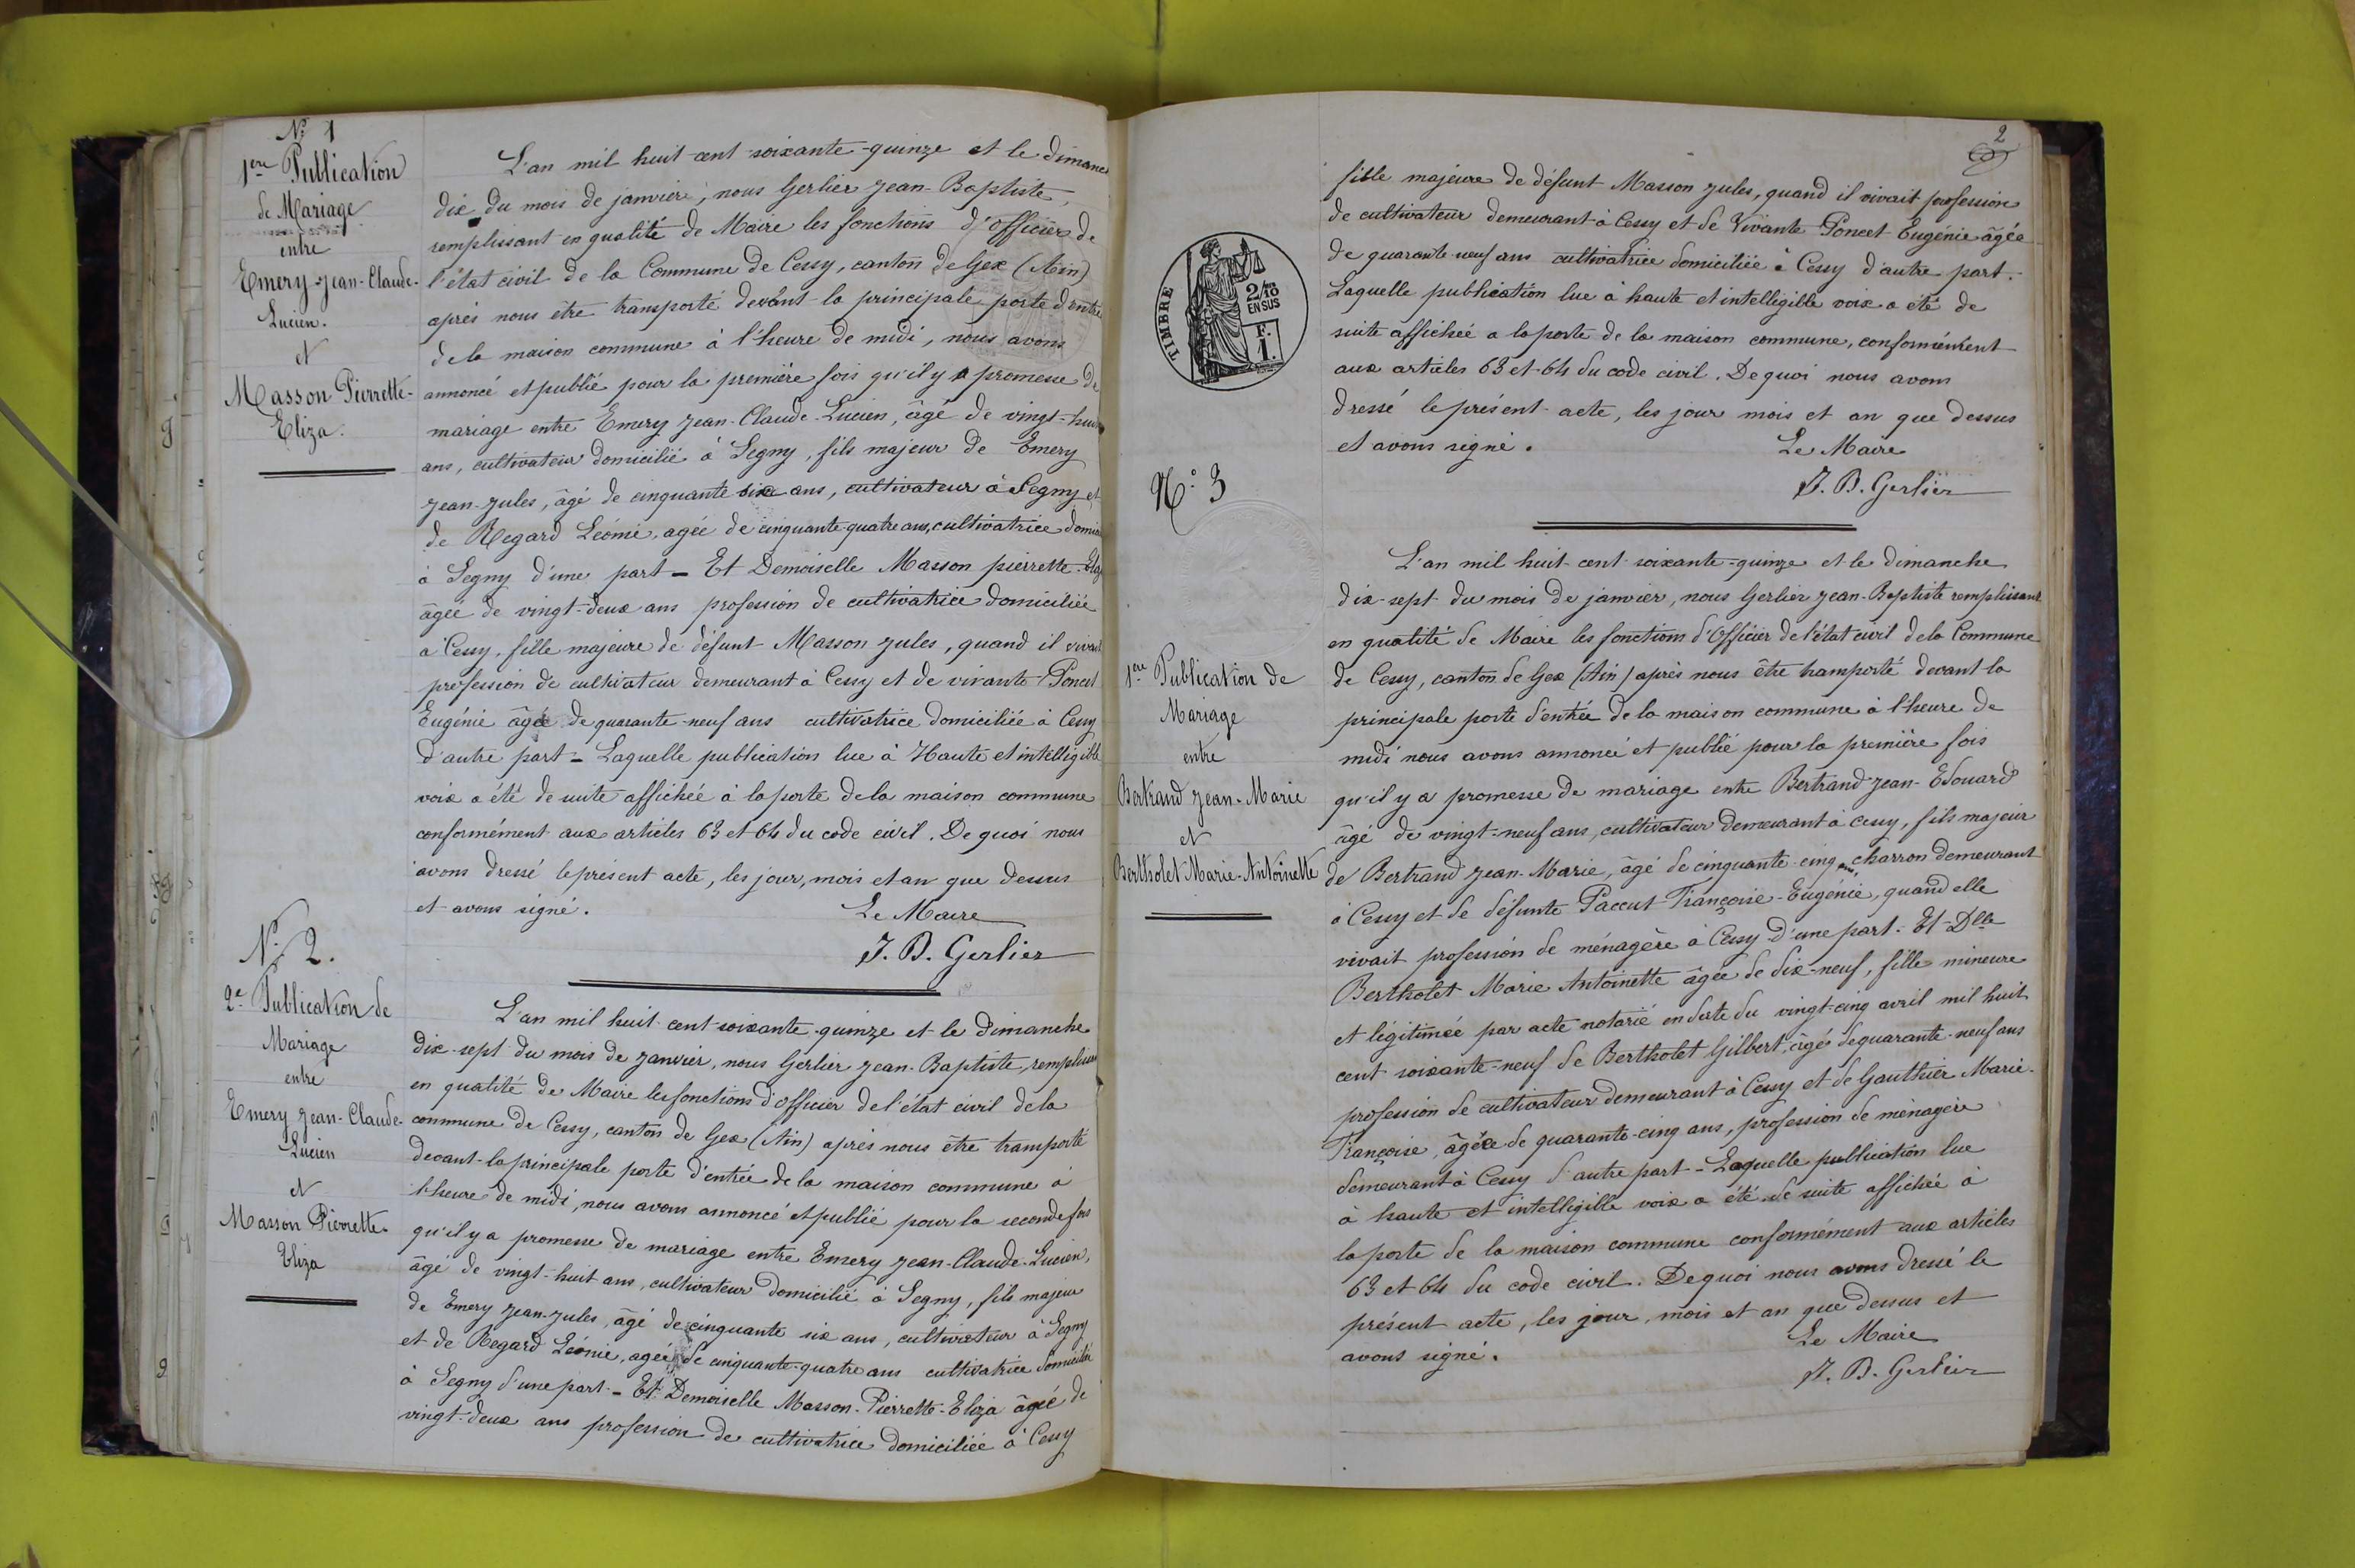 N° 1
1ère Publication
de Mariage
entre
Emery Jean-Claude-
Lucien.
et
Masson Pierrette-
Eliza.
L'an mil huit cent soixante-quinze et le dimanc
dix du mois de janvier, nous Gerlier Jean-Baptiste,
remplissant en qualité de Maire les fonctions d'Officier de
l'état civil de la Commune de Cessy, canton de Gex (Ain)
après nous être transporté devant la principale porte d'entré
de la maison commune à l'heure de midi, nous avons
annoncé et publié pour la première fois qu'il y a promesse de
mariage entre Emery Jean-Claude-Lucien, âgé de vingt-huit
ans, cultivateur domicilié à Segny, fils majeur de Emery
Jean-Jules, âgé de cinquante six ans, cultivateur à Segny et
de Regard Léonie, agée de cinquante-quatre ans, cultivatrice domici
à Segny d'une part - Et Demoiselle Masson pierrette-Eliz
âgée de vingt-deux ans profession de cultivatrice domiciliée
à Cessy, fille majeure de défunt Masson Jules, quand il vivait
profession de cultivateur demeurant à Cessy et de vivante Poncet
Eugénie âgée de quarante-neuf ans cultivatrice domiciliée à Cessy
d'autre part - Laquelle publication lue à Haute et intelligible
voix a été de suite affichée à la porte de la maison commune
conformément aux articles 63 et 64 du code civil. De quoi nous
avons dressé le présent acte, les jour, mois et an que dessus
et avons signé. Le Maire
J. B. Gerlier
N° 2.
2e Publication de
Mariage
entre
Emery Jean-Claude-
Lucien
et
Masson Pierrette-
Eliza
L'an mil huit cent soixante-quinze et le dimanche
dix-sept du mois de janvier, nous Gerlier Jean-Baptiste, remplissan
en qualité de Maire les fonctions d'Officier de l'état civil de la
commune de Cessy, canton de Gex (Ain) après nous être transporté
devant la principale porte d'entrée de la maison commune à
l'heure de midi, nous avons annoncé et publié pour la seconde fois
qu'il y a promesse de mariage entre Emery Jean-Claude-Lucien,
âgé de vingt-huit ans, cultivateur domicilié à Segny, fils majeur
de Emery Jean-Jules, âgé de cinquante six ans, cultivateur à Segny
et de Regard Léonie, agée de cinquante-quatre ans cultivatrice domiciliée
à Segny d'une part - Et Demoiselle Masson-Pierrette-Eliza âgée de
vingt-deux ans profession de cultivatrice domiciliée à Cessy
2
fille majeure de défunt Masson Jules, quand il vivait profession
de cultivateur demeurant à Cessy et de Vivante Poncet Eugénie âgée
de quarante-neuf ans cultivatrice domiciliée à Cessy d'autre part.
Laquelle publication lue à haute et intelligible voix a été de
suite affichée a la porte de la maison commune, conformément
aux articles 63 et 64 du code civil. De quoi nous avons
dressé le présent acte, les jour mois et an que dessus
et avons signé. Le Maire
J. B. Gerlier
TIMBRE
2/10
EN SUS
F.
1.
N° 3
1ère Publication de
Mariage
entre
Bertrand Jean-Marie
et
Bertholet Marie-Antoinette
L'an mil huit cent soixante-quinze et le dimanche
dix-sept du mois de janvier, nous Gerlier Jean-Baptiste remplissant
en qualité de Maire les fonctions d'Officier de l'état civil de la Commune
de Cessy, canton de Gex (Ain) après nous être transporté devant la
principale porte d'entrée de la maison commune à l'heure de
midi nous avons annoncé et publié pour la première fois
qu'il y a promesse de mariage entre Bertrand Jean-Edouard
âgé de vingt-neuf ans, cultivateur demeurant à Cessy, fils majeur
de Bertrand Jean-Marie, âgé de cinquante-cinq ans, charron demeurant
à Cessy et de défunte Paccut Françoise-Eugénie, quand elle
vivait profession de ménagère à Cessy d'une part. Et Dlle
Bertholet Marie Antoinette âgée de dix-neuf, fille mineure
et légitimée par acte notarié en date du vingt-cinq avril mil huit
cent soixante-neuf de Bertholet Gilbert, âgé de quarante-neuf ans
profession de cultivateur demeurant à Cessy et de Gauthier Marie-
Françoise, âgée de quarante-cinq ans, profession de ménagère
demeurant à Cessy d'autre part - Laquelle publication lue
à haute et intelligible voix a été de suite affichée à
la porte de la maison commune conformément aux articles
63 et 64 du code civil. De quoi nous avons dressé le
présent acte, les jour, mois et an que dessus et
avons signé. Le Maire
J. B. Gerlier